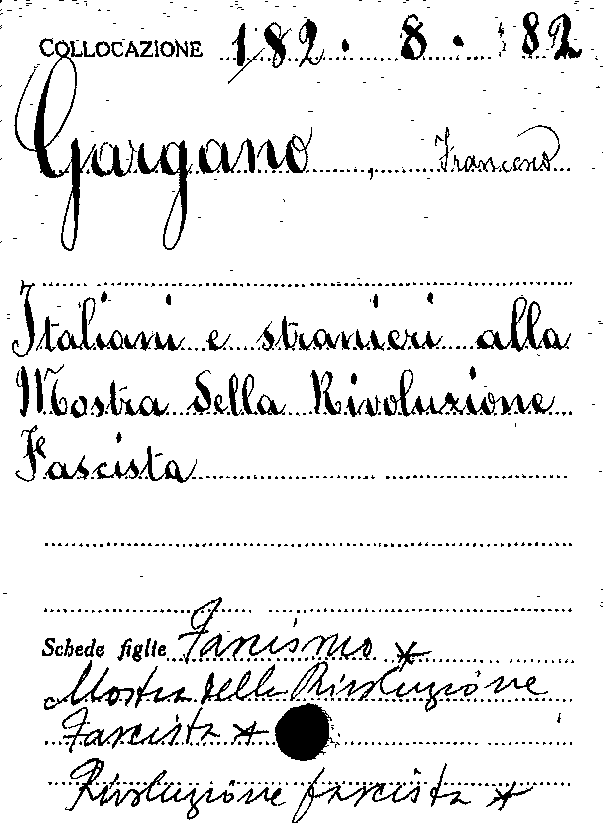 COLLOCAZIONE 182. 8. 82
Gargano, Francesco
Italiani e stranieri alla
Mostra della Rivoluzione
Fascista
Schede figlie Fascismo *
Mostra della Rivoluzione
Fascista *
Rivoluzione fascista *